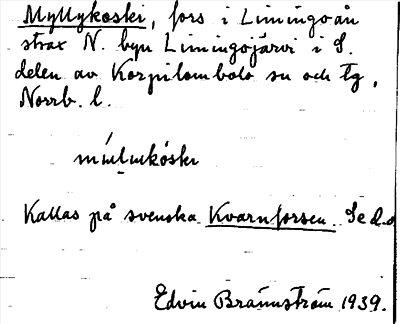 Myllykoski, fors i Liningoån
strax N. byn Liningojärvi i S.
delen av Korpilombolo sn och tg,
Norrb. l.
Kallas på svenska Kvarnforsen. Se d.o
Edvin Brännström 1939.